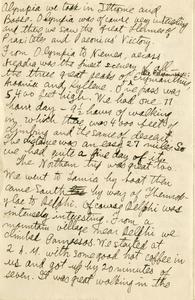 Olympia we took in Ithome and
Bassae. Olympia was of course very interesting
and there we saw the great Hermes of
Praxiteles and Paeonius Victory.
From Olympia to Nemea, across
Arcadia was the finest scenery of all
the three great peaks of Erymanthus
Aroania and Kyllene. One pass was
5400 feet high. We had one 11
hour day - 9 hours of walking
in which there was 6000 feet of
climbing and the same of descent
The distance was an easy 27 miles. So
we had quite a fine day of it.
The Northern trip was great too.
We went to Lamia by boat then
came South by way of Thermop-
ylae to Delphi. Of course Delphi was
intensely interesting. From a
mountain village near Delphi we
climbed Parnassos. We started at
2 A.M. with some good hot coffee in
us and got up by 20 minutes of
seven. It was great walking in the